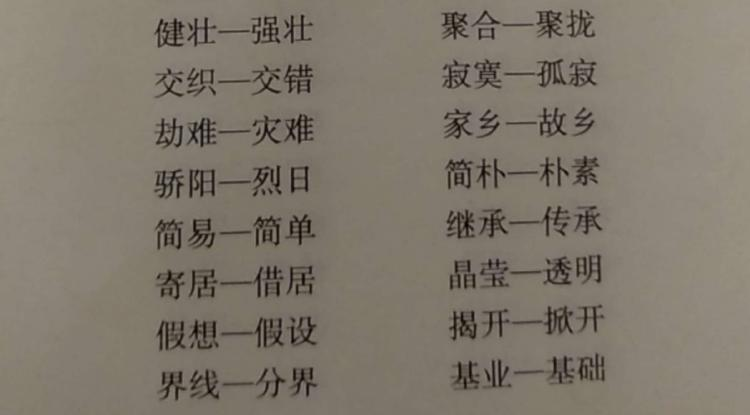 健壮—强壮 聚合—聚拢
交织—交错 寂寞—孤寂
劫难—灾难 家乡—故乡
骄阳—烈日 简朴—朴素
简易—简单 继承—传承
寄居—借居 晶莹—透明
假想—假设 揭开—掀开
界线—分界 基业—基础